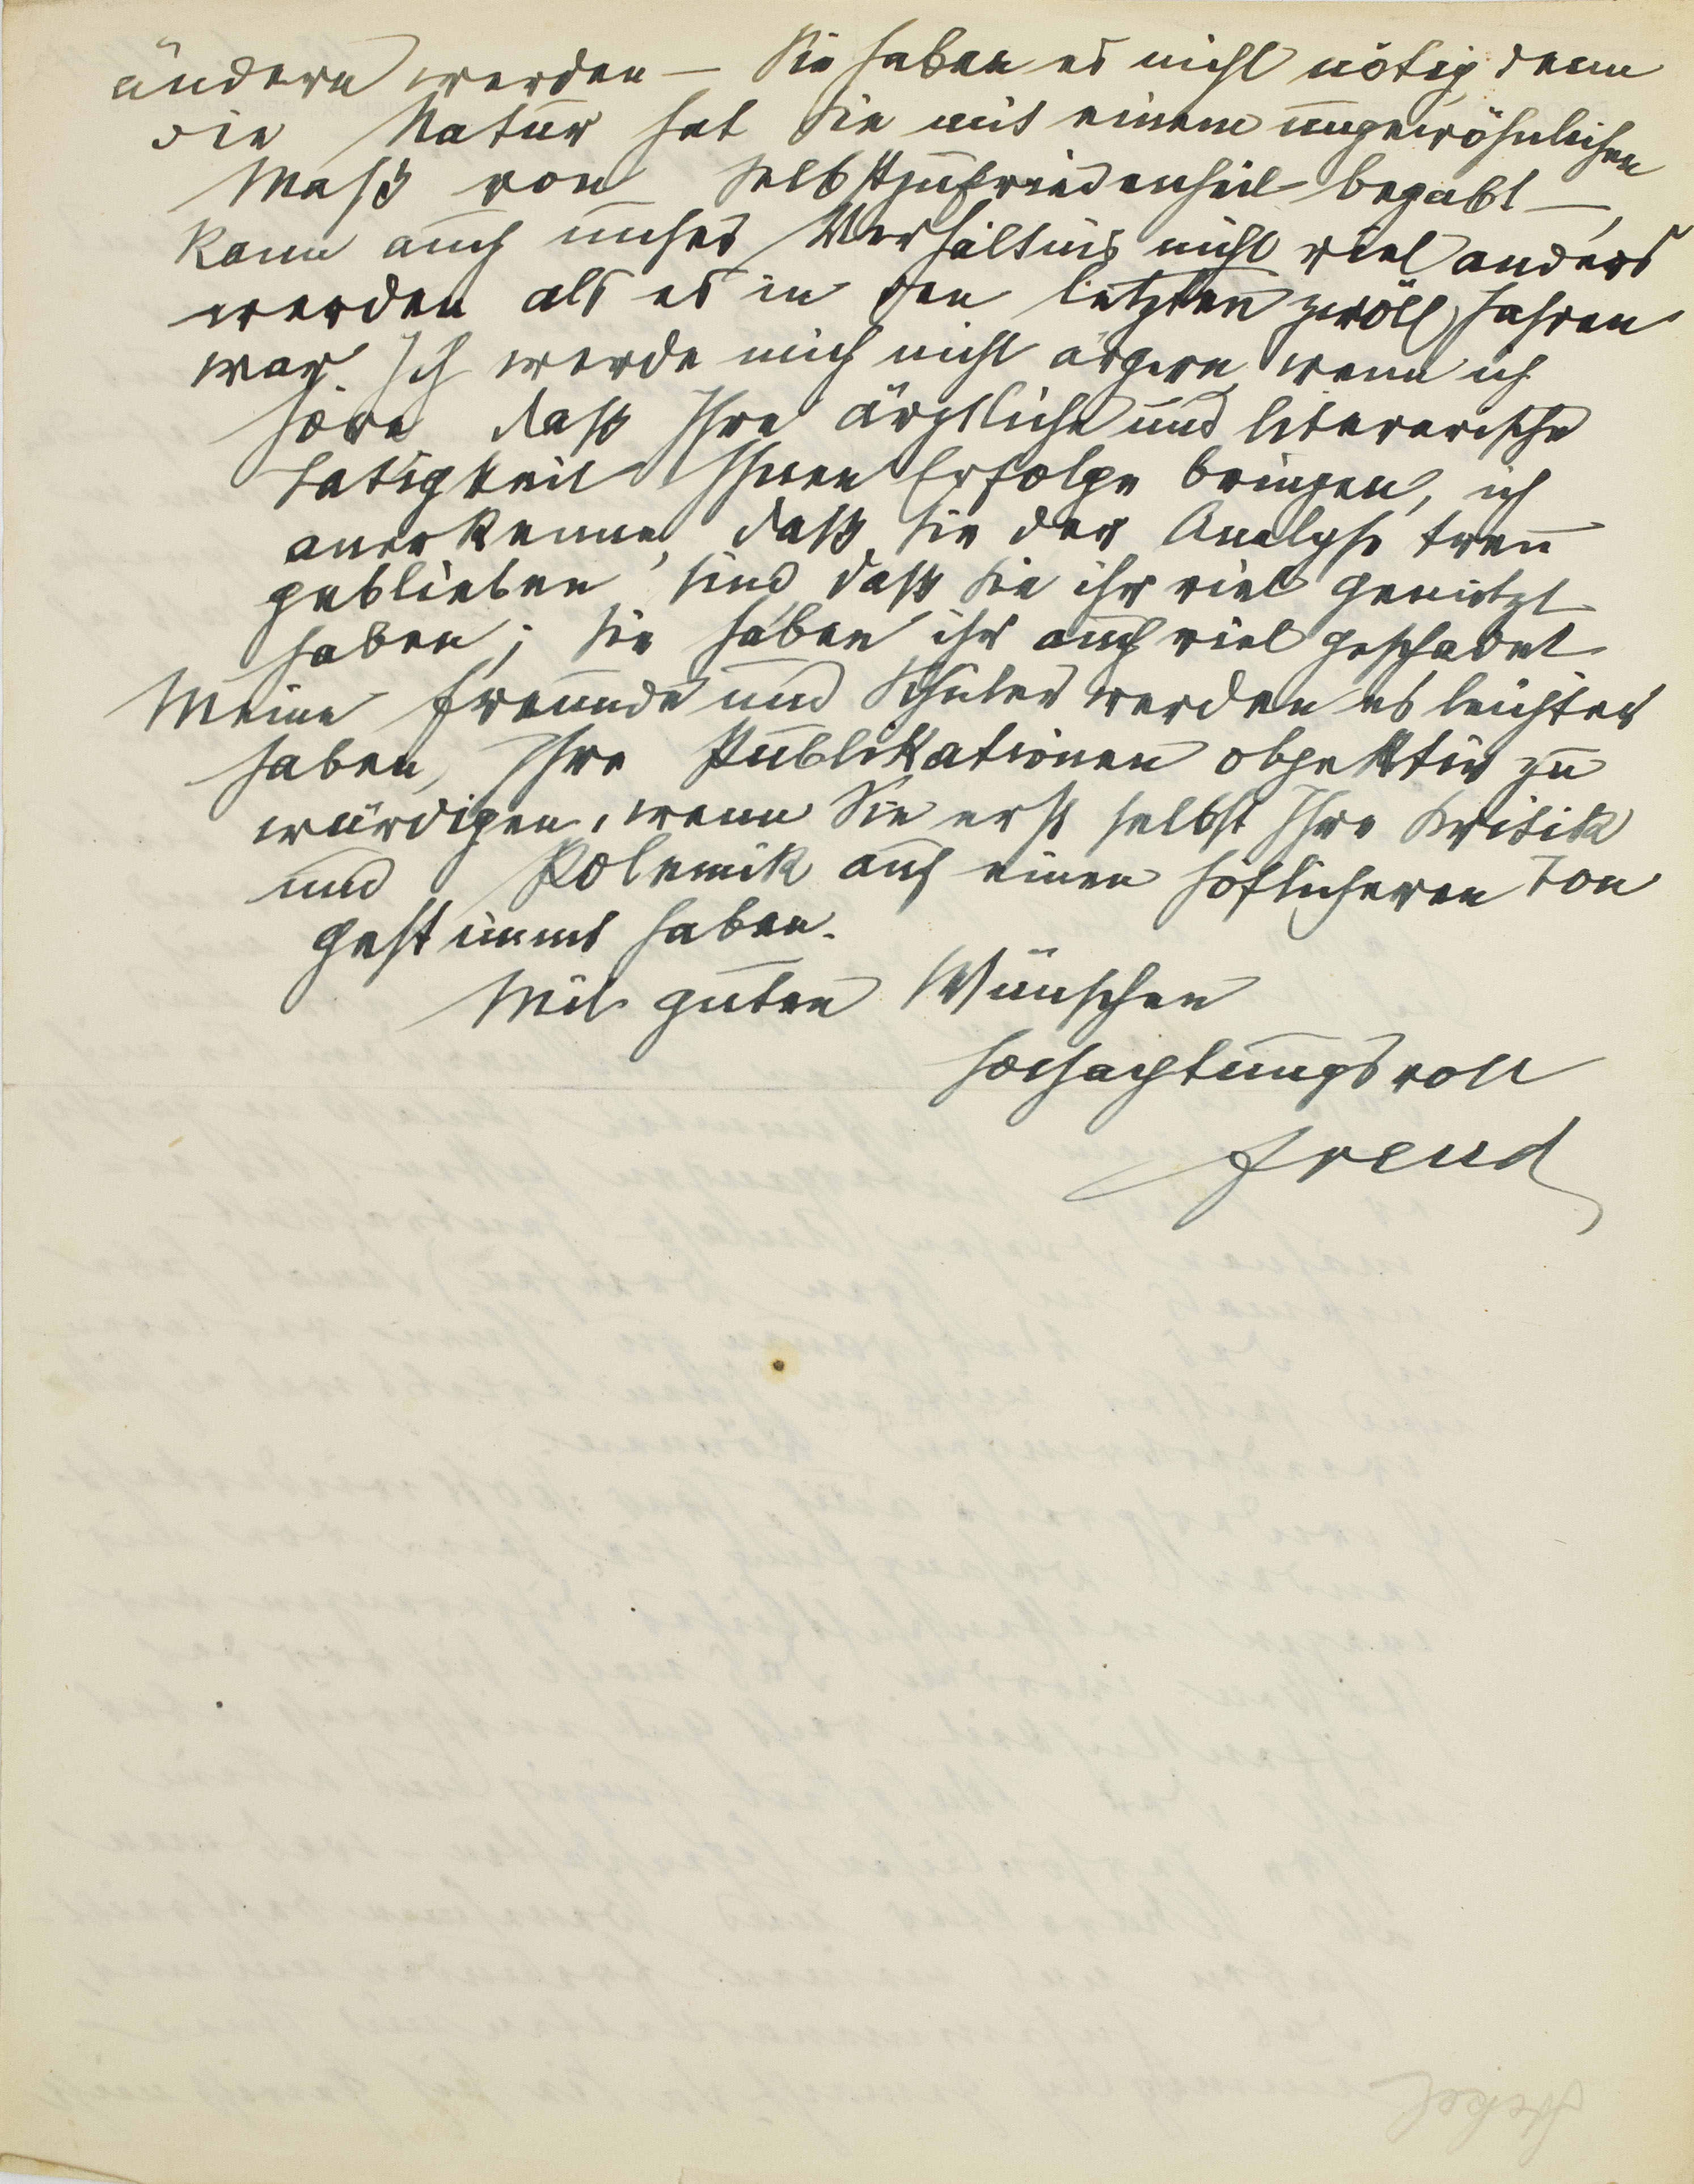 ändern werden – Sie haben es nicht nötig, denn
die Natur hat Sie mit einem ungewöhnlichen
Maß von Selbstzufriedenheit begabt –,
kann auch unser Verhältnis nicht viel anders
werden als es in den letzten zwölf Jahren
war. Ich werde mich nicht ärgern, wenn ich
höre daß Ihre ärztliche und literarische
Tätigkeit Ihnen Erfolge bringen, ich
anerkenne, daß Sie der Analyse treu
geblieben sind, daß Sie ihr viel genützt
haben; Sie haben ihr auch viel geschadet.
Meine Freunde und Schüler werden es leichter
haben, Ihre Publikationen objektiv zu
würdigen, wenn Sie erst selbst Ihre Kritik
und Polemik auf einen höflicheren Ton
gestimmt haben.
Mit guten Wünschen
hochachtungsvoll
Freud